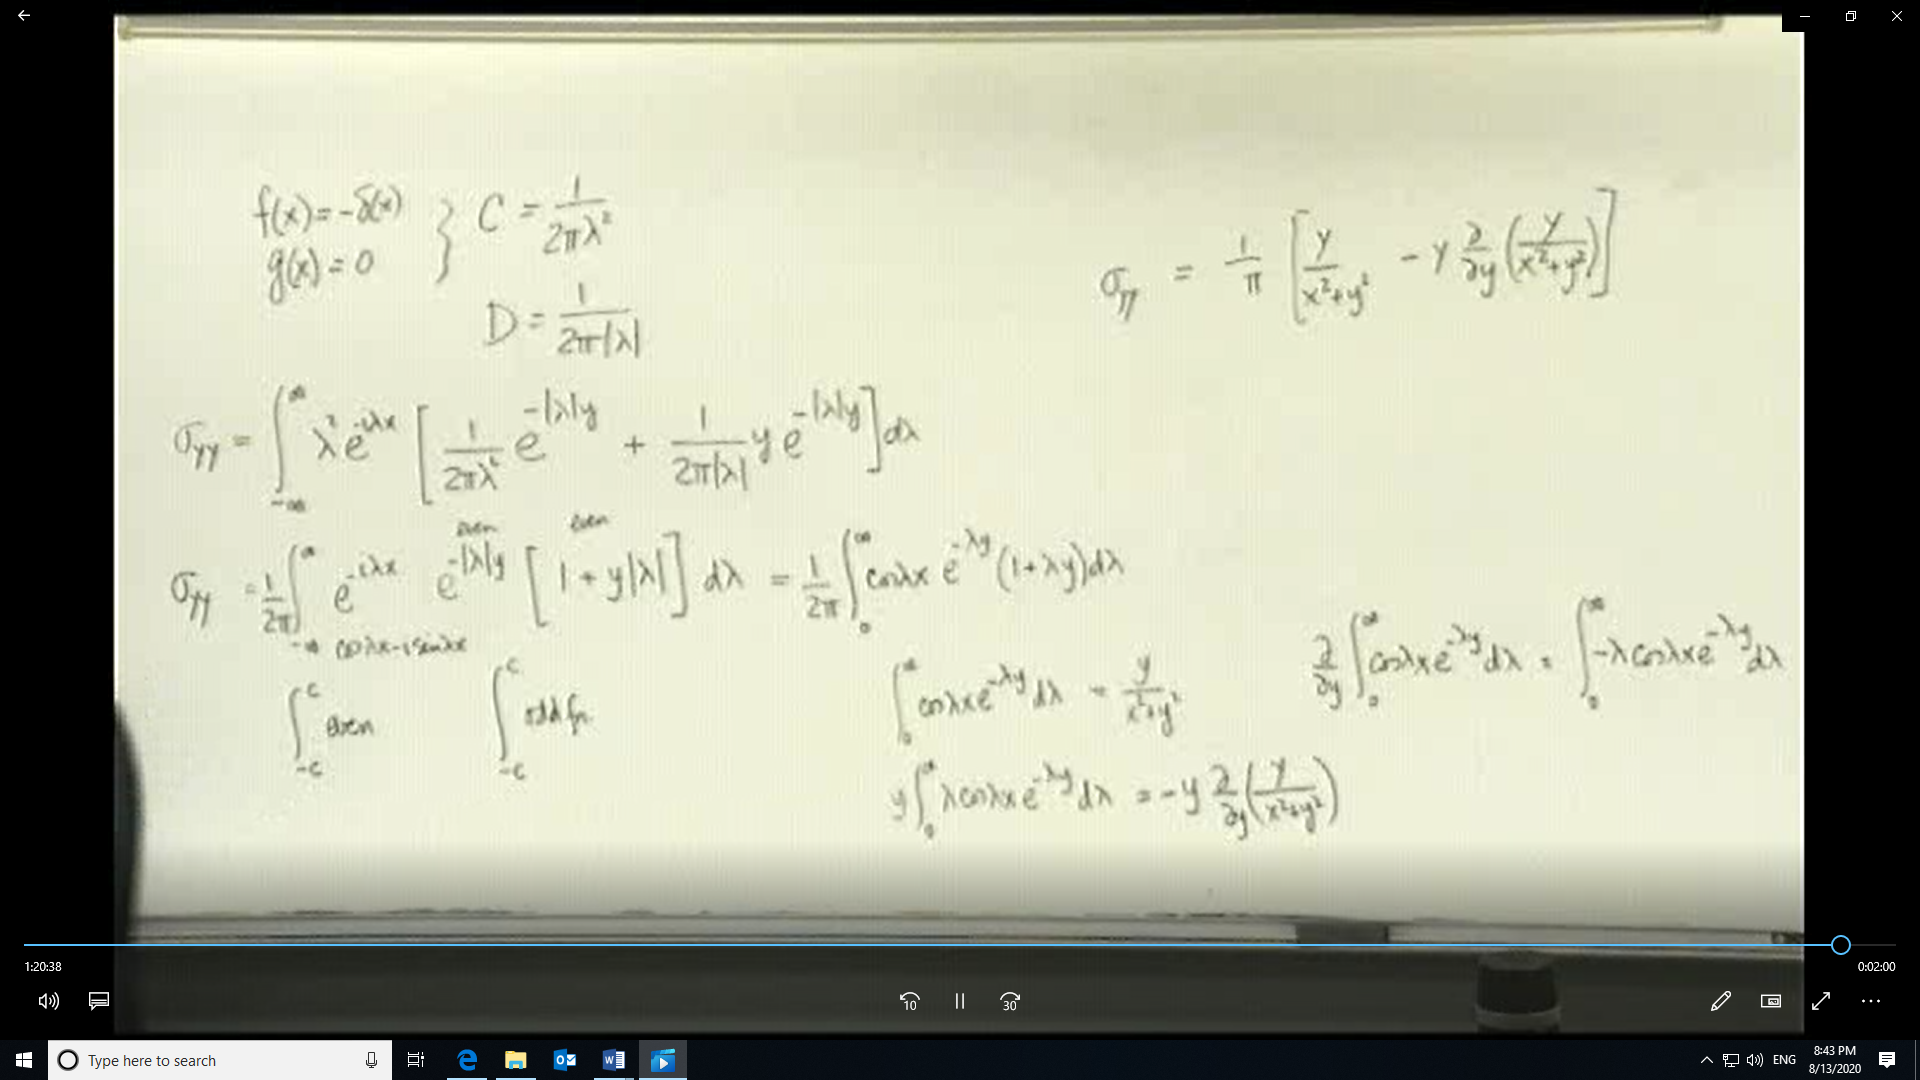 f(x) = -δ(x) } C = 1/(2πλ²)
g(x) = 0
D = 1/(2π|λ|)
σyy = 1/π [ y/(x²+y²) - y ∂/∂y ( y/(x²+y²) ) ]
σyy = ∫_{-∞}^{∞} λ² e^{-iλx} [ 1/(2πλ²) e^{-|λ|y} + 1/(2π|λ|) y e^{-|λ|y} ] dλ
even even
σyy = 1/2π ∫_{-∞}^{∞} e^{-iλx} e^{-|λ|y} [ 1 + y|λ| ] dλ = 1/2π ∫_0^∞ cosλx e^{-λy} (1+λy) dλ
cosλx - i sinλx
∫_{-c}^{c} even ∫_{-c}^{c} odd fn
∫_0^∞ cosλx e^{-λy} dλ = y/(x²+y²)
∂/∂y ∫_0^∞ cosλx e^{-λy} dλ = ∫_0^∞ -λ cosλx e^{-λy} dλ
y ∫_0^∞ λ cosλx e^{-λy} dλ = -y ∂/∂y ( y/(x²+y²) )
1:20:38
0:02:00
10
30
Type here to search
ENG
8:43 PM
8/13/2020